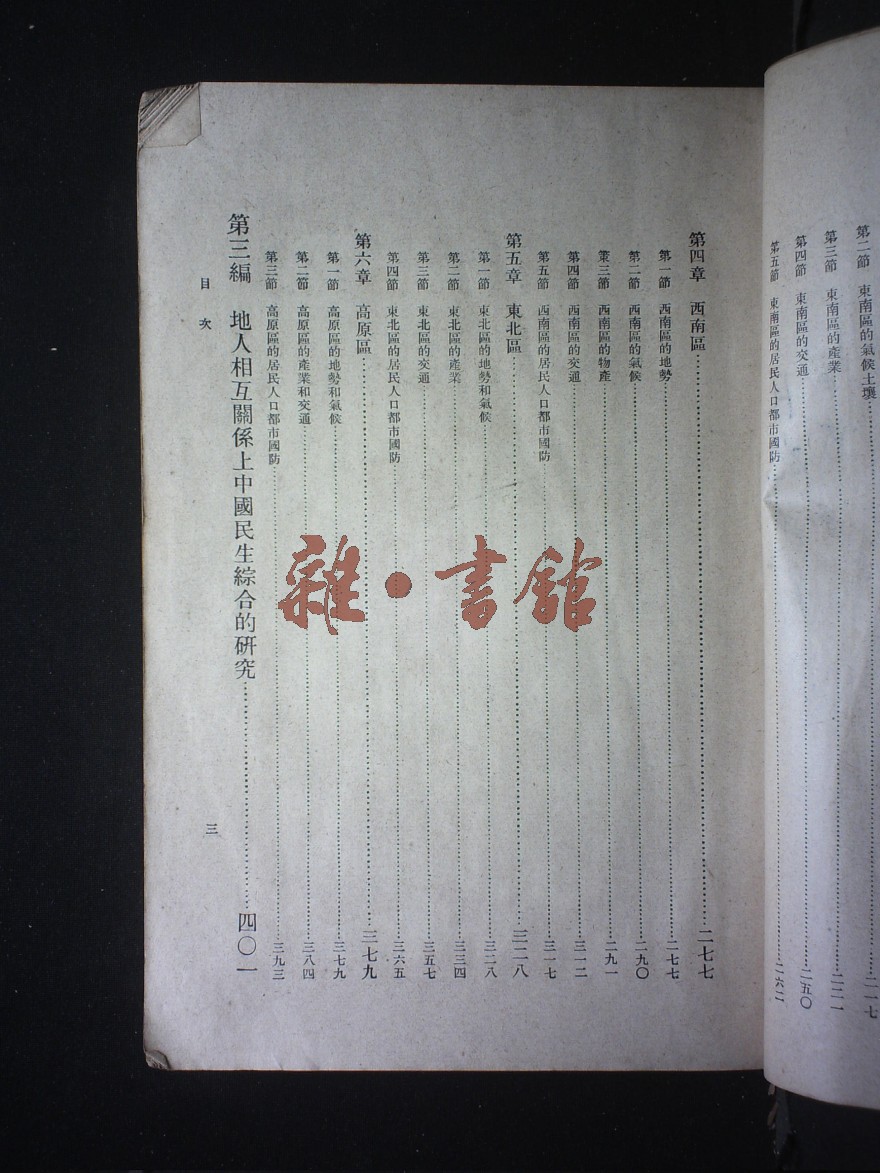 第二節　東南區的氣候土壤……二一七
第三節　東南區的產業……二二一
第四節　東南區的交通……二五〇
第五節　東南區的居民人口都市國防……二六二
第四章　西南區……二七七
第一節　西南區的地勢……二七七
第二節　西南區的氣候……二九〇
第三節　西南區的物產……二九一
第四節　西南區的交通……三一二
第五節　西南區的居民人口都市國防……三一七
第五章　東北區……三二八
第一節　東北區的地勢和氣候……三二八
第二節　東北區的產業……三三四
第三節　東北區的交通……三五七
第四節　東北區的居民人口都市國防……三六五
第六章　高原區……三七九
第一節　高原區的地勢和氣候……三七九
第二節　高原區的產業和交通……三八四
第三節　高原區的居民人口都市國防……三九三
第三編　地人相互關係上中國民生綜合的研究……四〇一
目次　三
雜・書館